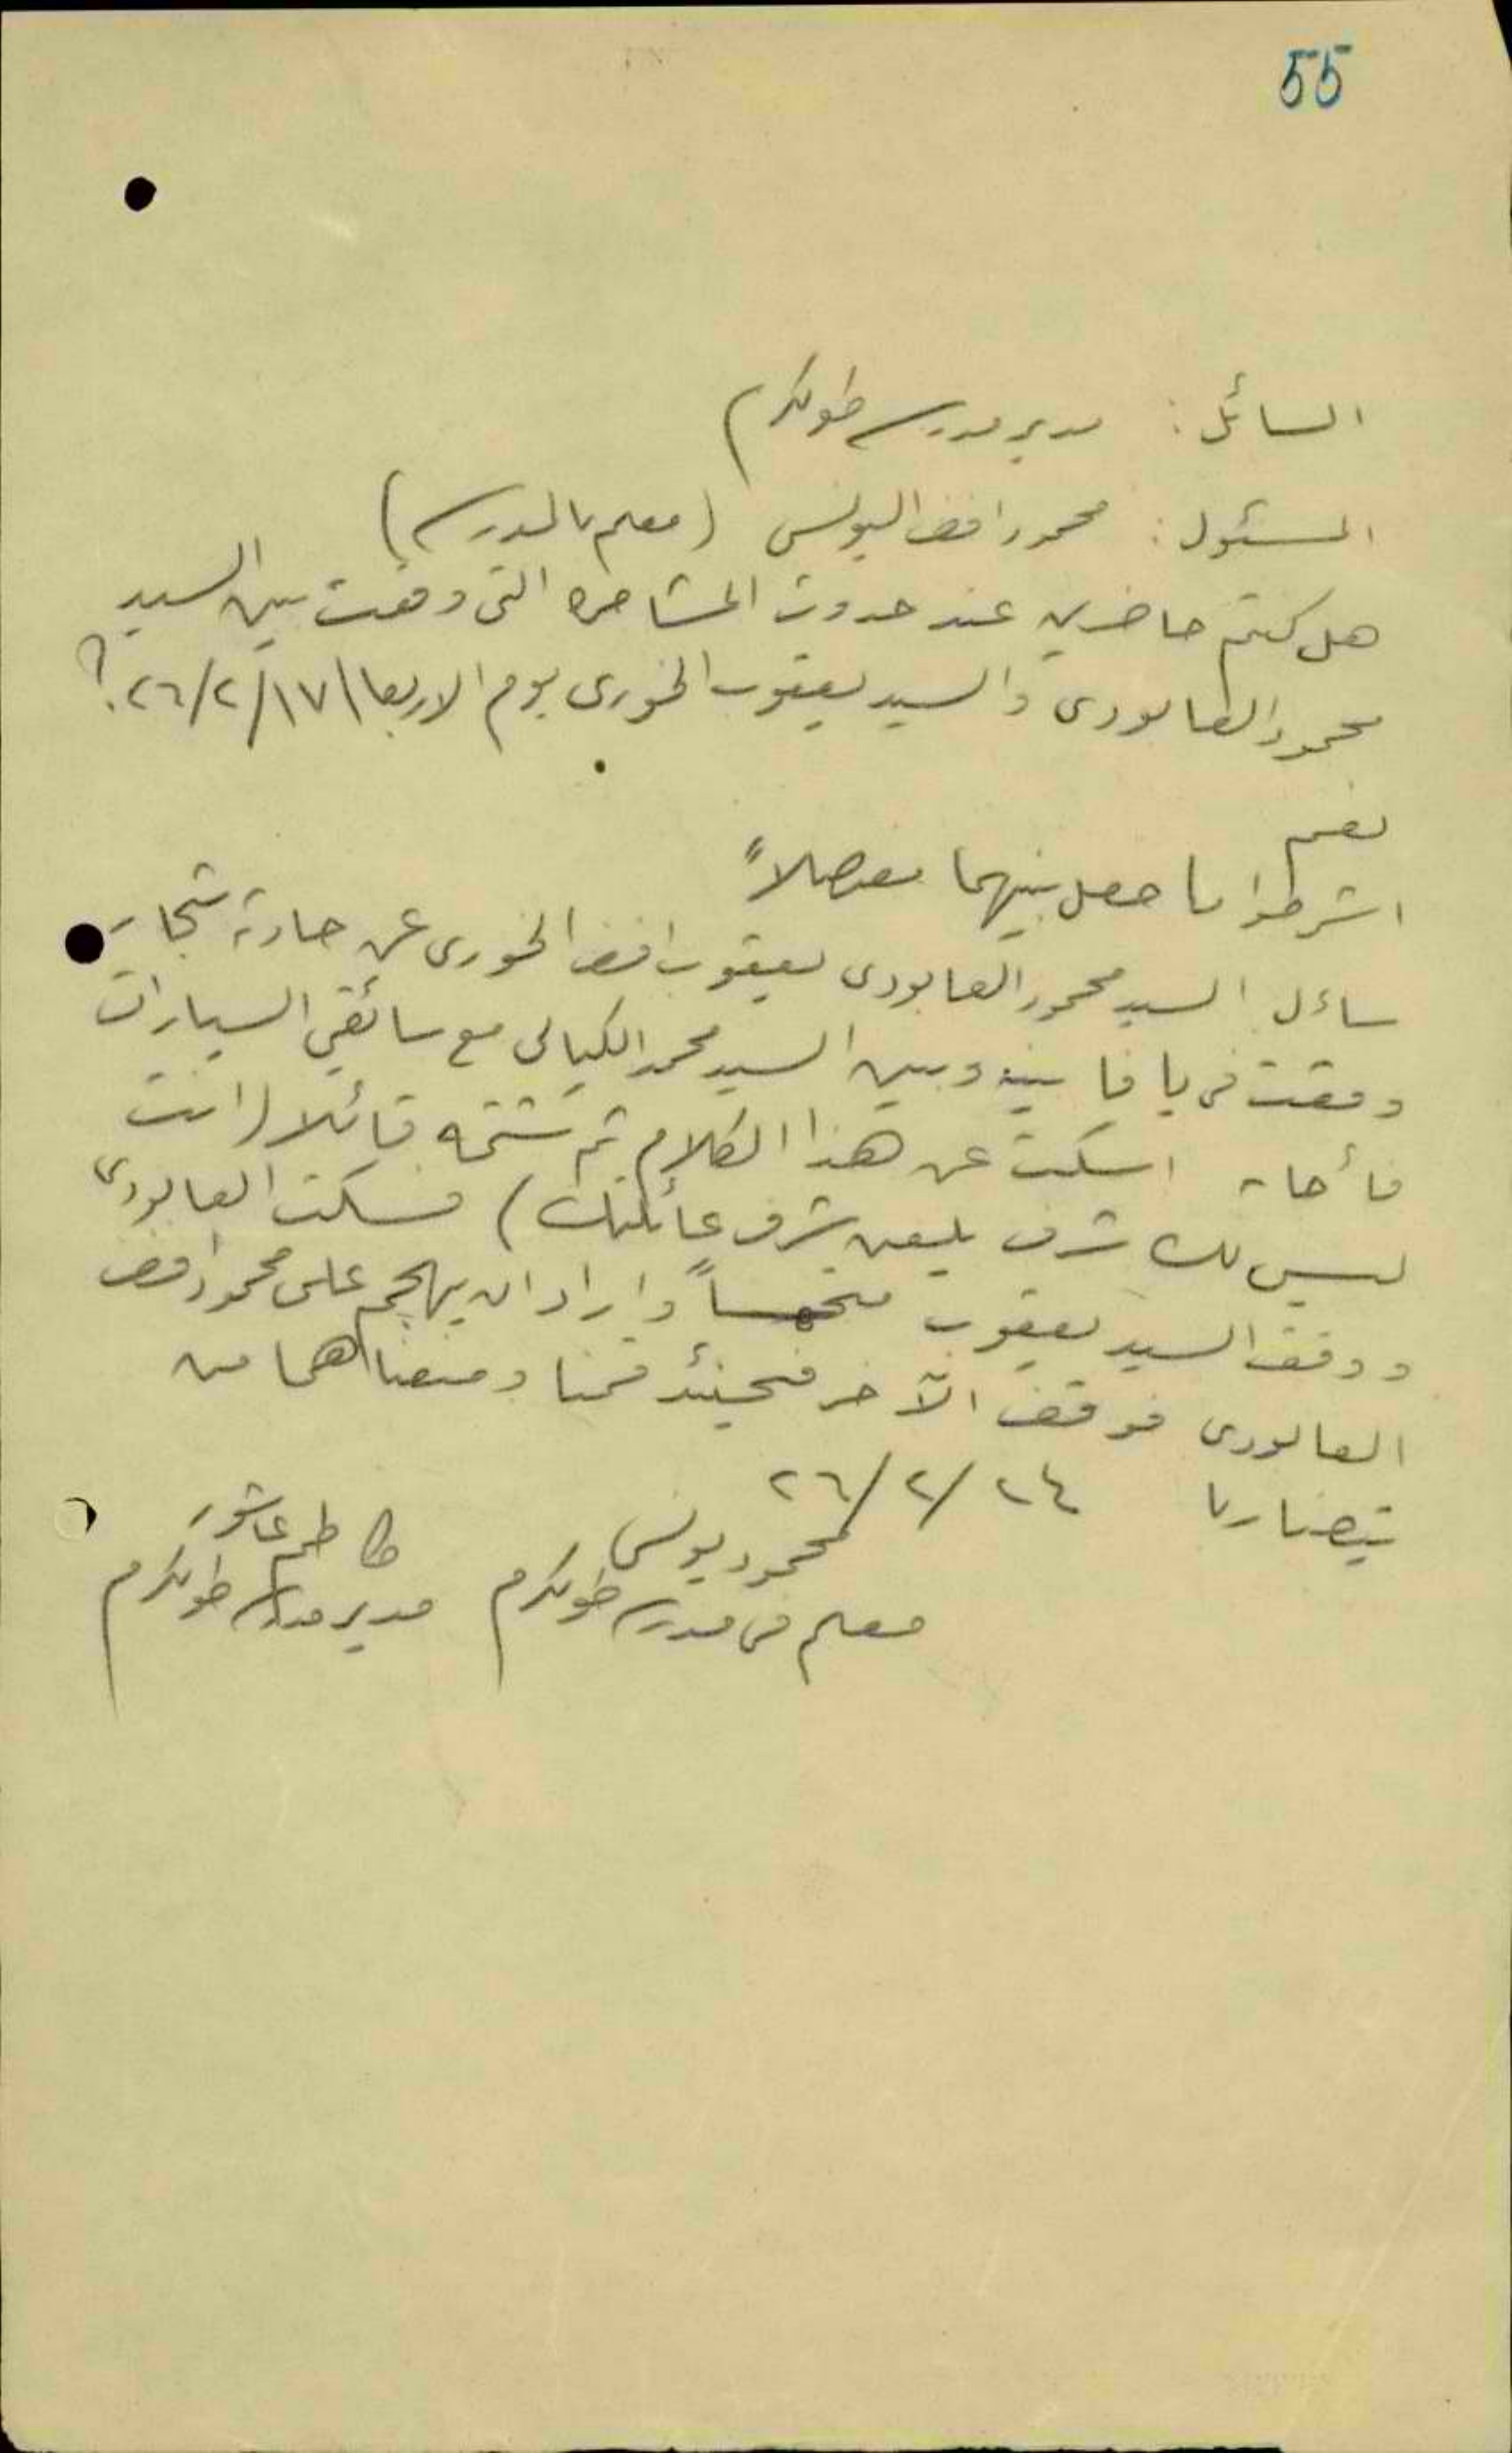 55
السائل : مدير مدرسة طولكرم
المسئول : محمود افندي اليونس (معلم بالمدرسة)
هل كنتم حاضرين عند حدوث المشاجرة التي وقعت بين السيد
محمود العابودي والسيد يعقوب الخوري يوم الاربعا ١٧/٢/٢٦ ؟
نعم
اشرحوا ما حصل بينهما مفصلاً
ساءل السيد محمود العابودي يعقوب افندي الخوري عن حادثة شجار
وقعت في يافا بينه وبين السيد محمد الكيالي مع سائقي السيارات
فأجابه اسكت عن هذا الكلام ثم شتمه قائلا (انت
ليس لك شرف يلعن شرف عائلتك) فسكت العابودي
ووقف السيد يعقوب واراد ان يهجم على محمود افندي
العابودي فوقف الآخر فحينئذ قمنا ومنعناهما من
يتضاربا ٢٤/٢/٢٦
محمود يونس كاظم عاشور
معلم في مدرسة طولكرم مدير مدرسة طولكرم